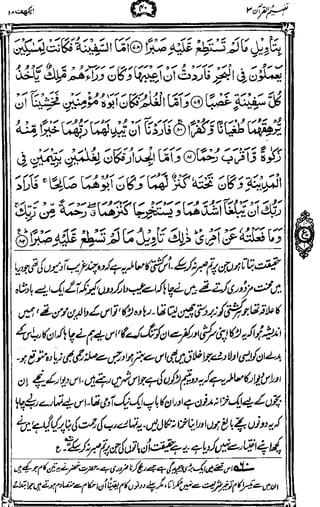 تفہیم القرآن ۳
۴۰
الکہف ۱۸
بِتَأْوِيلِ مَا لَمْ تَسْتَطِعْ عَلَيْهِ صَبْرًا ﴿۷۸﴾ أَمَّا السَّفِينَةُ فَكَانَتْ لِمَسٰكِينَ
يَعْمَلُونَ فِي الْبَحْرِ فَأَرَدْتُّ أَنْ أَعِيبَهَا وَكَانَ وَرَآءَهُمْ مَّلِكٌ يَّأْخُذُ
كُلَّ سَفِينَةٍ غَصْبًا ﴿۷۹﴾ وَأَمَّا الْغُلٰمُ فَكَانَ أَبَوٰهُ مُؤْمِنَيْنِ فَخَشِينَآ أَنْ
يُّرْهِقَهُمَا طُغْيَانًا وَّكُفْرًا ﴿۸۰﴾ فَأَرَدْنَآ أَنْ يُّبْدِلَهُمَا رَبُّهُمَا خَيْرًا مِّنْهُ
زَكٰوةً وَّأَقْرَبَ رُحْمًا ﴿۸۱﴾ وَأَمَّا الْجِدَارُ فَكَانَ لِغُلٰمَيْنِ يَتِيمَيْنِ فِي
الْمَدِينَةِ وَكَانَ تَحْتَهُ كَنْزٌ لَّهُمَا وَكَانَ أَبُوهُمَا صَالِحًا فَأَرَادَ
رَبُّكَ أَنْ يَّبْلُغَآ أَشُدَّهُمَا وَيَسْتَخْرِجَا كَنْزَهُمَا رَحْمَةً مِّنْ رَّبِّكَ
وَمَا فَعَلْتُهُ عَنْ أَمْرِي ذٰلِكَ تَأْوِيلُ مَا لَمْ تَسْطِعْ عَّلَيْهِ صَبْرًا ﴿۸۲﴾
حقیقت بتاتا ہوں جن پر تم صبر نہ کر سکے۔ اُس کشتی کا معاملہ یہ ہے کہ وہ چند غریب آدمیوں کی تھی جو دریا
میں محنت مزدوری کرتے تھے۔ میں نے چاہا کہ اسے عیب دار کر دوں، کیونکہ آگے ایک ایسے بادشاہ
کا علاقہ تھا جو ہر کشتی کو زبردستی چھین لیتا تھا۔ رہا وہ لڑکا، تو اس کے والدین مومن تھے، ہمیں
اندیشہ ہوا کہ یہ لڑکا اپنی سرکشی اور کفر سے ان کو تنگ کرے گا، اس لیے ہم نے چاہا کہ ان کا رب اس کے
بدلے ان کو ایسی اولاد دے جو اخلاق میں بھی اس سے بہتر ہو اور جس سے صلہ رحمی بھی زیادہ متوقع ہو۔
اور اس دیوار کا معاملہ یہ ہے کہ یہ دو یتیم لڑکوں کی ہے جو اس شہر میں رہتے ہیں۔ اس دیوار کے نیچے اِن
بچوں کے لیے ایک خزانہ مدفون ہے اور ان کا باپ ایک نیک آدمی تھا۔ اس لیے تمہارے رب نے چاہا
کہ یہ دونوں بچے بالغ ہوں اور اپنا خزانہ نکال لیں۔ یہ تمہارے رب کی رحمت کی بنا پر کیا گیا ہے، میں نے
کچھ اپنے اختیار سے نہیں کر دیا ہے۔ یہ ہے حقیقت اُن باتوں کی جن پر تم صبر نہ کر سکے۔
۶۰ اس قصے میں ایک بڑی پیچیدگی ہے جسے رفع کرنا ضروری ہے۔ حضرت خضر نے یہ تین کام جو کیے ہیں